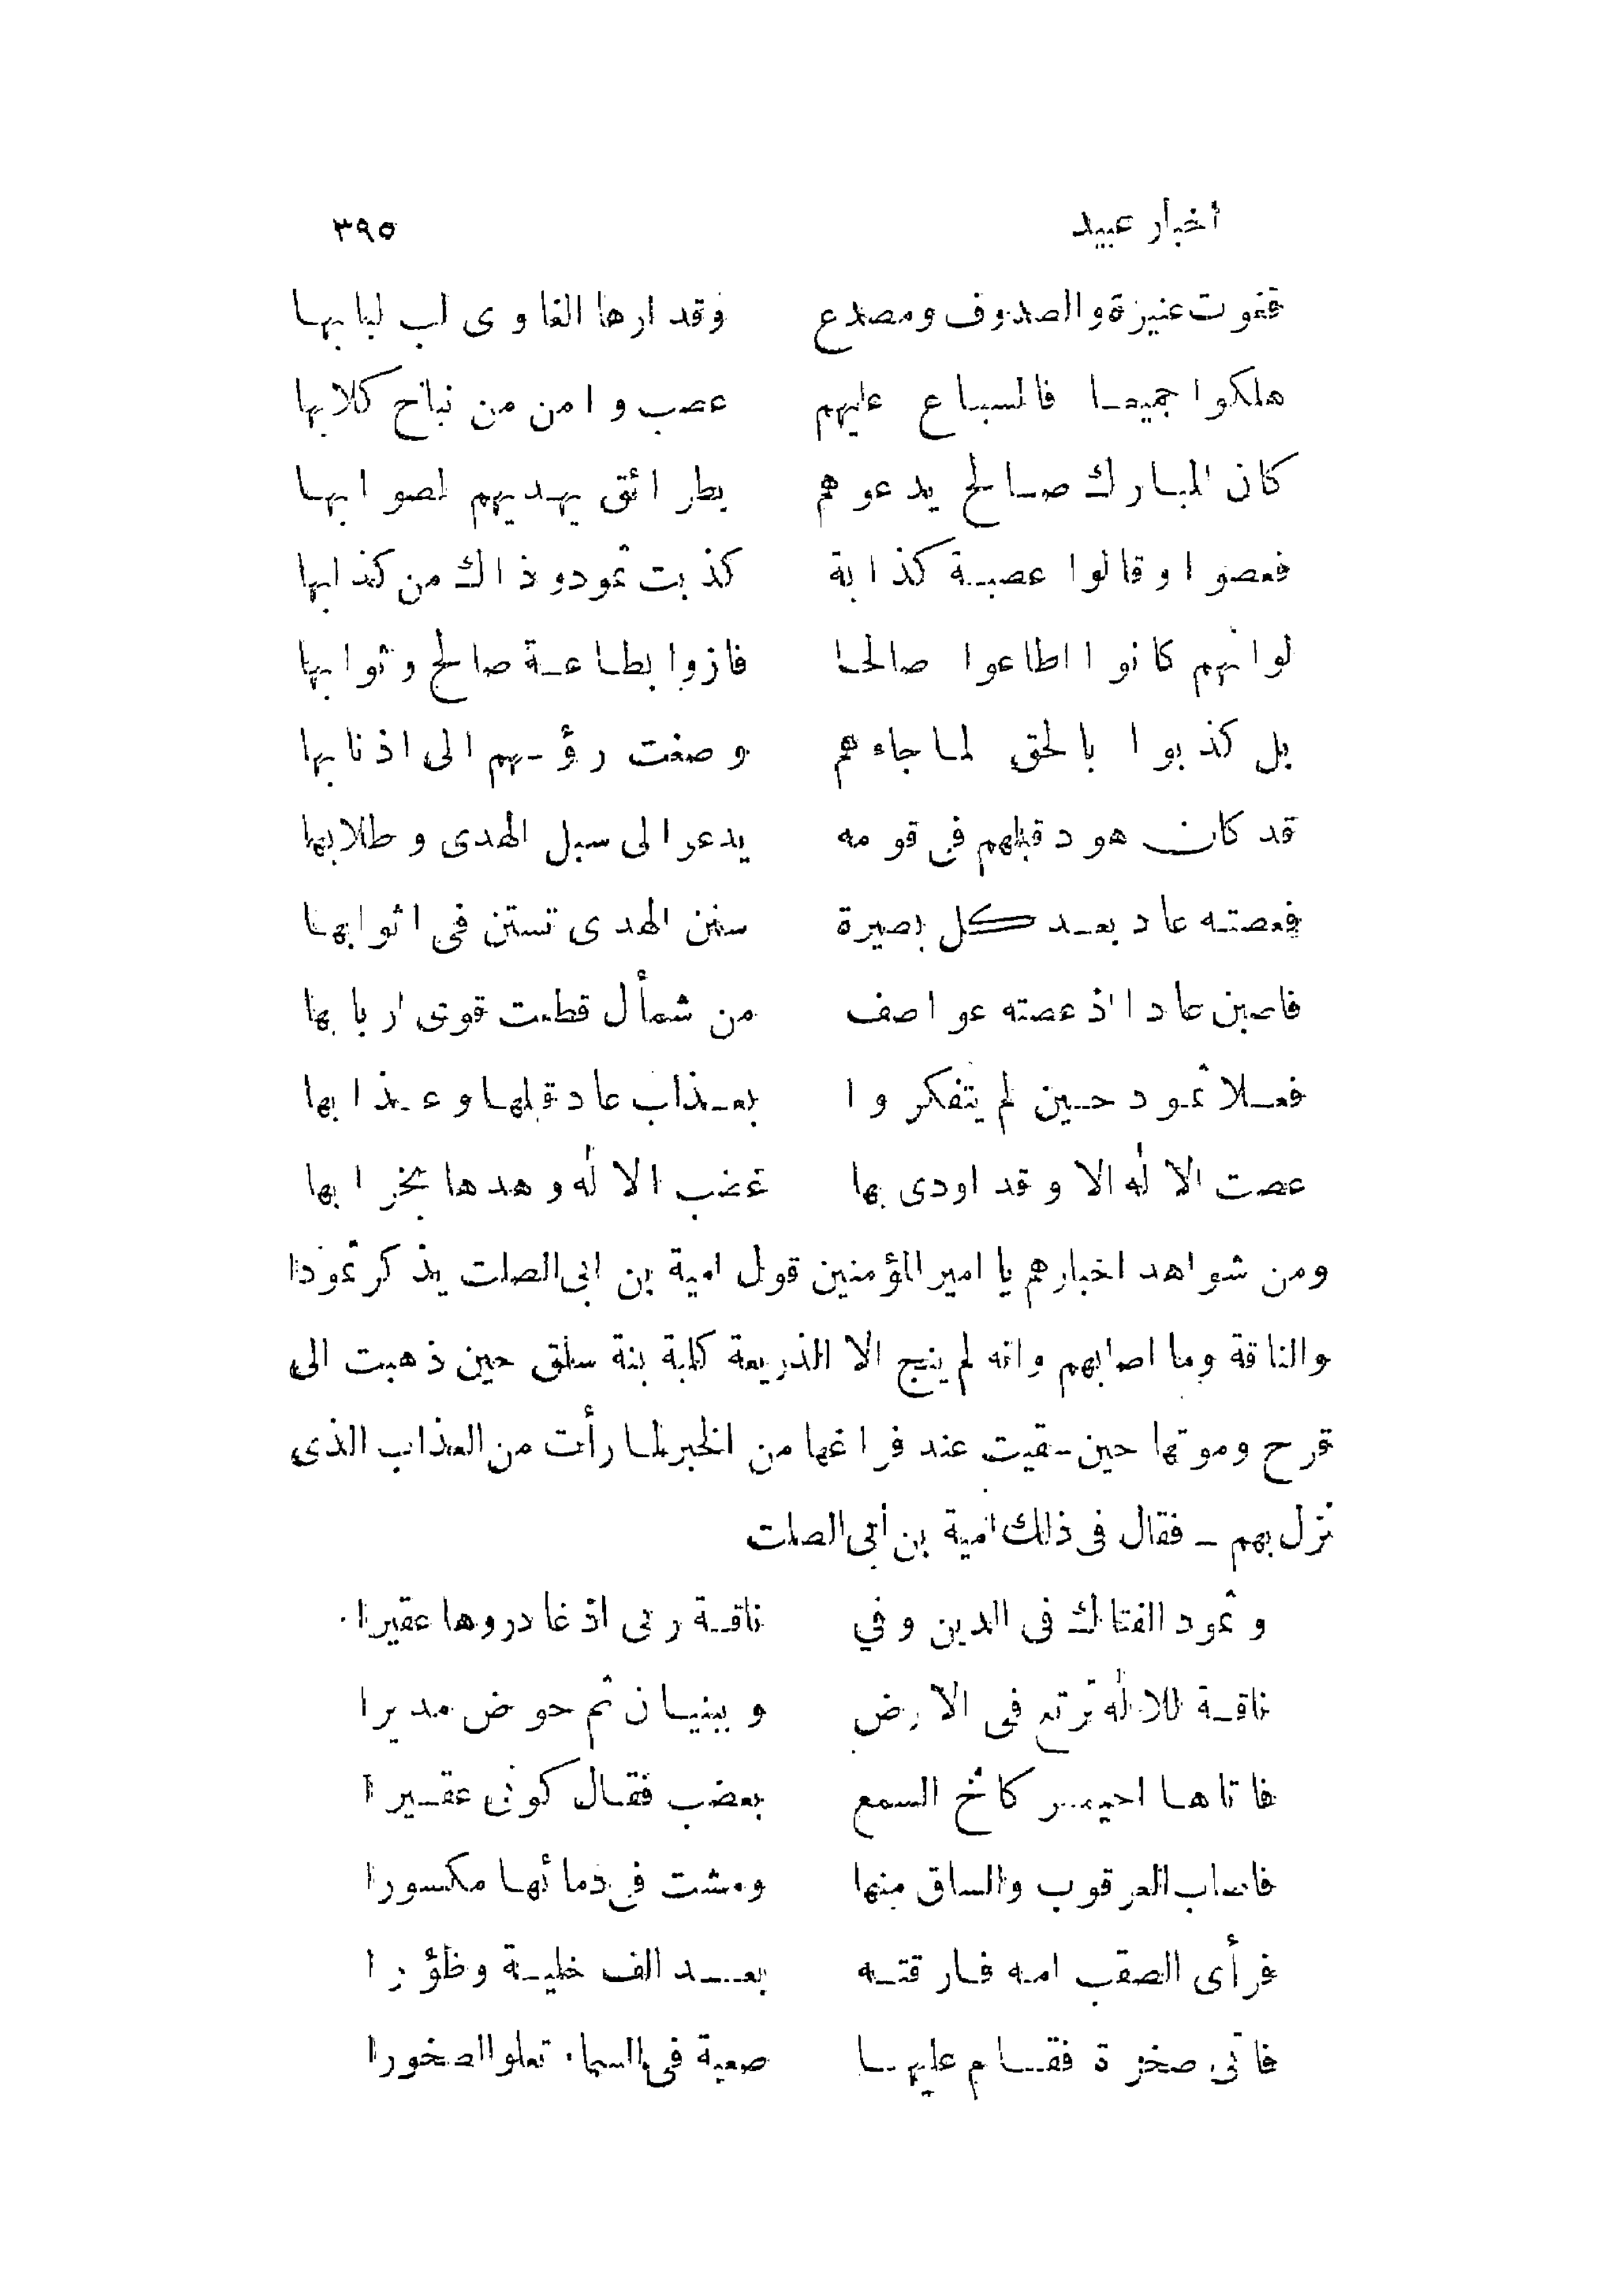 أخبار عبيد ٣٩٥
فغوت عنيزة والصدوف ومصدع وقدارها الغاوى لب لبابها
هلكوا جميعا فالسباع عليهم عصب وامن من نباح كلابها
كان المبارك صالح يدعوهم بطرائق يهديهم لصوابها
فعصوا وقالوا عصبة كذابة كذبت ثمود وذاك من كذابها
لوانهم كانوا اطاعوا صالحا فازوا بطاعة صالح وثوابها
بل كذبوا بالحق لما جاءهم وصغت رؤسهم الى اذنابها
قد كان هود قبلهم فى قومه يدعوالى سبل الهدى وطلابها
فعصته عاد بعد كل بصيرة سنن الهدى تستن فى اثوابها
فاصبن عادا اذ عصته عواصف من شمأل قطعت قوى اربابها
فعلا ثمود حين لم يتفكروا بعذاب عاد قبلها وعذابها
عصت الاله الا وقد اودى بها غضب الاله وهدها بخرابها
ومن شواهد اخبارهم يا امير المؤمنين قول امية بن ابى الصلت يذكر ثمودا
والناقة وما اصابهم وانه لم ينج الا الذريعة كلبة بنة سلق حين ذهبت الى
قرح وموتها حين سقيت عند فراغها من الخبر لما رأت من العذاب الذى
نزل بهم ـ فقال فى ذلك امية بن أبى الصلت
وثمود الفتاك فى الدين وفي ناقة ربى اذ غادروها عقيرا
ناقة للاله ترتع فى الارض وبينيان ثم حوض مديرا
فاتاها احيمر كاخ السمع بعضب فقال كونى عقيرا
فاصاب العرقوب والساق منها ومشت فى دمائها مكسورا
فرأى الصقب امه فارقته بعد الف خلية وظؤرا
فاتى صخرة فقام عليها صعبة فى السماء تعلوالصخورا